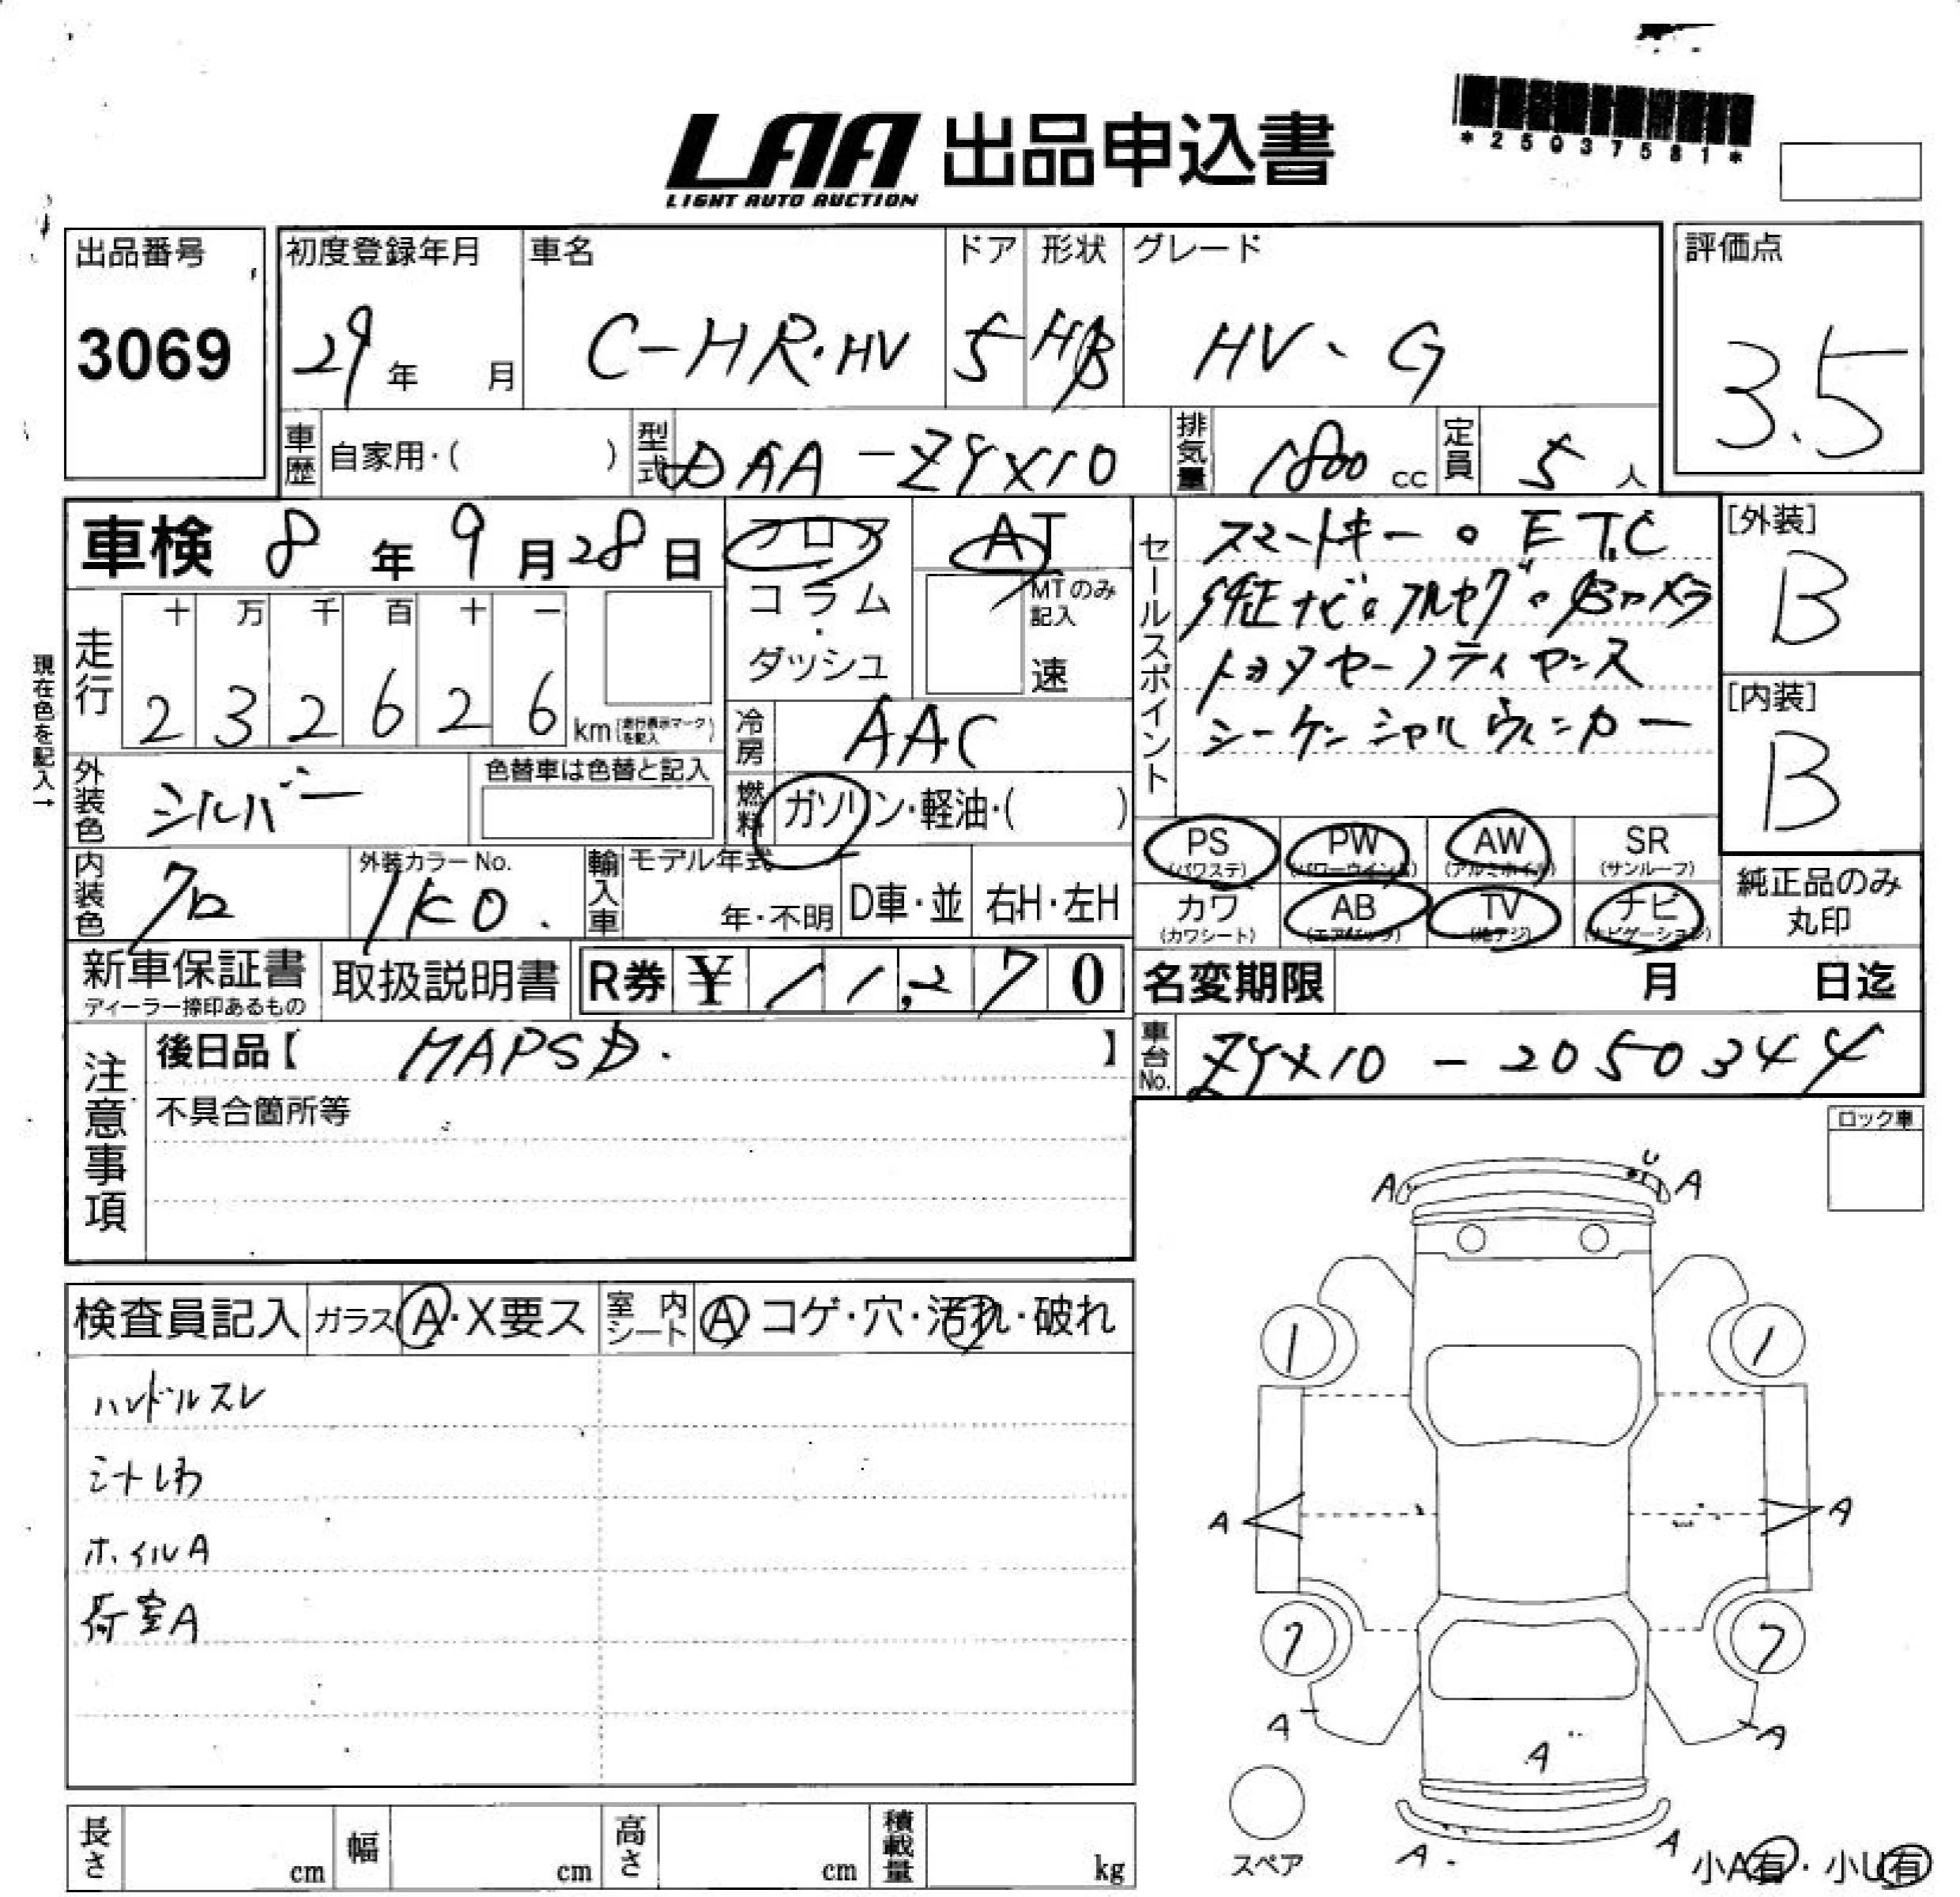 *25037581*
LAA 出品申込書
LIGHT AUTO AUCTION
出品番号 初度登録年月 車名 ドア 形状 グレード 評価点
3069 29年 月 C-HR・HV 5 HB HV、G 3.5
車歴 自家用・( ) 型式 DAA-ZYX10 排気量 1800cc 定員 5人
車検 8年9月28日 フロア AT セールスポイント スマートキー。ETC [外装]
コラム・ MTのみ記入 純正ナビ。フルセグ。Bカメラ B
ダッシュ 速 トヨタセーフティセンス
現在色を記入→
走行 十 万 千 百 十 一
2 3 2 6 2 6 km (走行表示マークを記入) 冷房 AAC シーケンシャルウィンカー [内装]
外装色 シルバー 色替車は色替と記入 燃料 ガソリン・軽油・( ) B
PS PW AW SR
(パワステ) (パワーウインド) (アルミホイル) (サンルーフ)
内装色 クロ 外装カラーNo. 1K0. 輸入車 モデル年式 年・不明 D車・並 右H・左H カワ AB TV ナビ 純正品のみ
(カワシート) (エアバック) (地デジ) (ナビゲーション) 丸印
新車保証書 取扱説明書 R券 ¥ 11,270 名変期限 月 日迄
ディーラー捺印あるもの
注意事項 後日品【 MAPSD. 】 車台No. ZYX10-2050344
不具合箇所等 ロック車
U
A A
検査員記入 ガラス A・X要ス 室内シート A コゲ・穴・汚れ・破れ
1 1
ハンドルスレ
シートしわ
A A
ホイルA
荷室A
7 7
A A
A
長さ cm 幅 cm 高さ cm 積載量 kg スペア A A 小A有・小U有